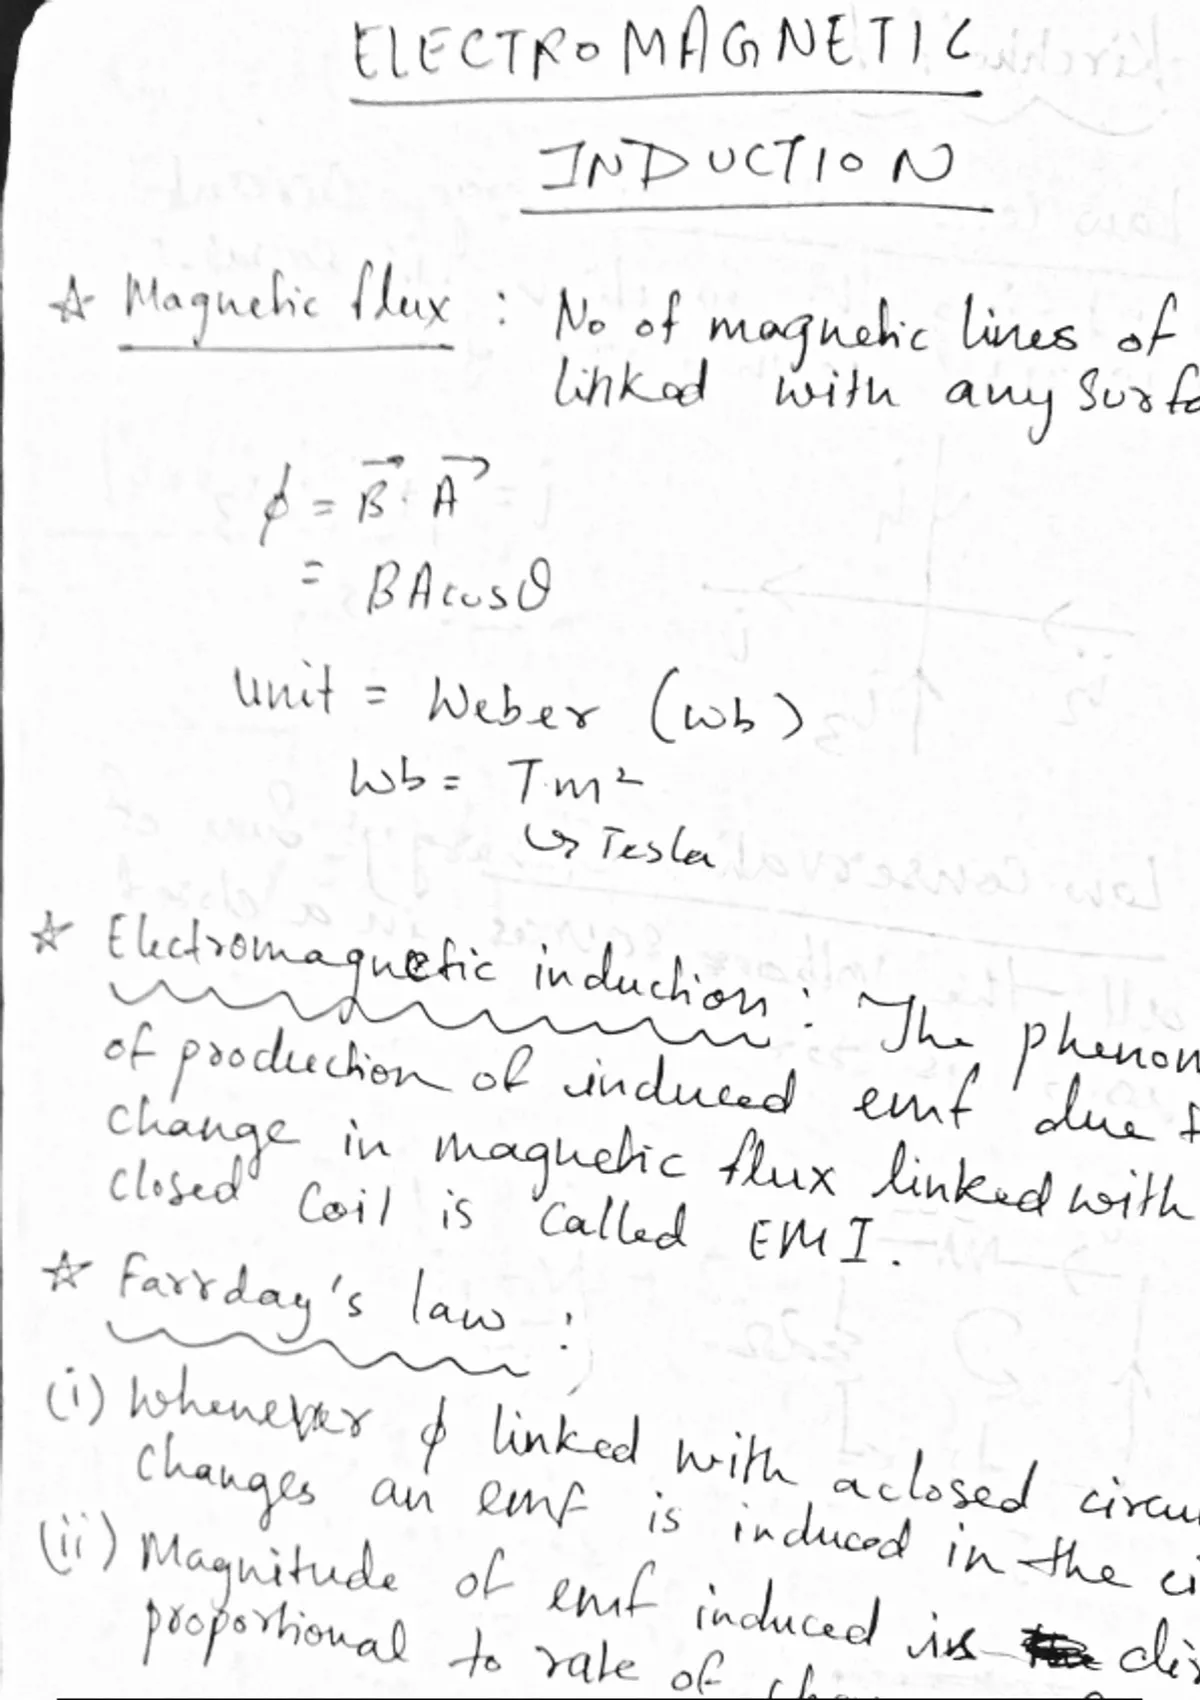 ELECTROMAGNETIC
INDUCTION
☆ Magnetic flux : No of magnetic lines of
linked with any Surfa
ϕ = B⃗ · A⃗
= BAcosθ
unit = Weber (wb)
Wb = T.m²
↳ Tesla
☆ Electromagnetic induction : The phenom
of production of induced emf due t
change in magnetic flux linked with
closed Coil is called EMI.
☆ Farrday's law :
(i) Whenever ϕ linked with a closed circu
changes an emf is induced in the ci
(ii) Magnitude of emf induced is dir
proportional to rate of cha